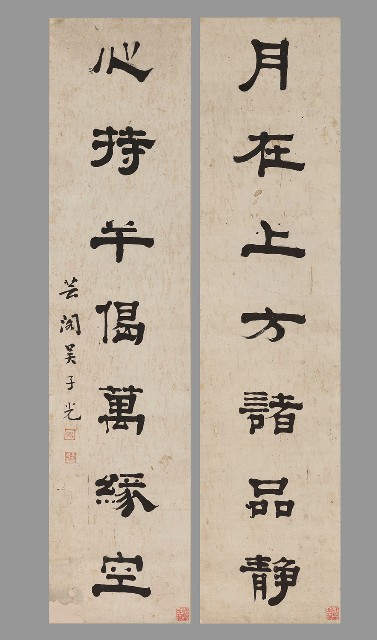 月在上方諸品静
心持午偈萬緣空
芸閣吴子光